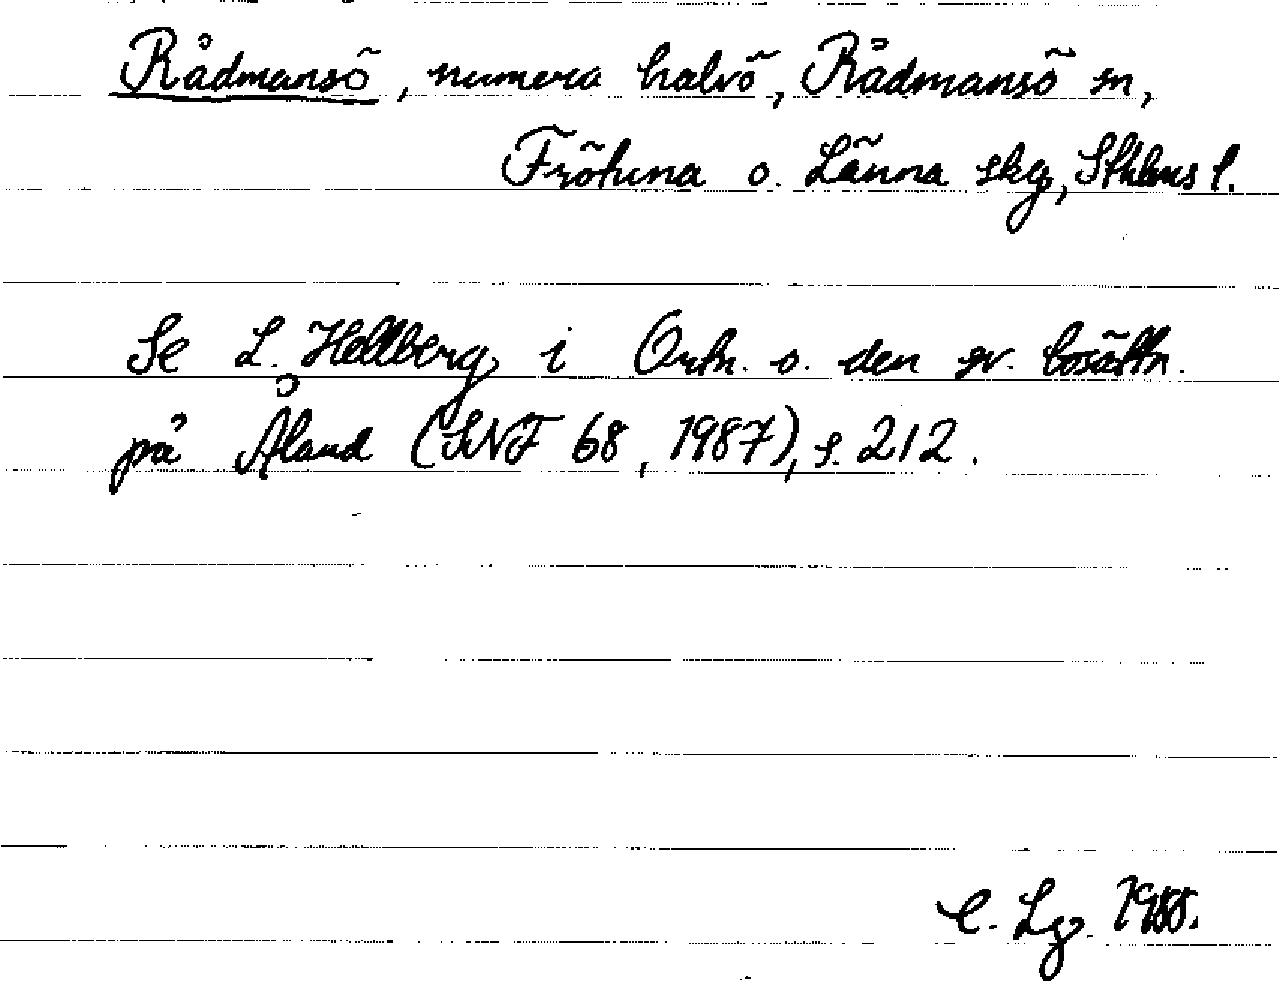 Rådmansö, numera halvö, Rådmansö sn,
Frötuna o. Länna skg, Sthlms l.
Se L. Hellberg i Ortn. o. den sv. bosättn.
på Åland (SNF 68, 1987), s. 212.
C. Lg. 1988.